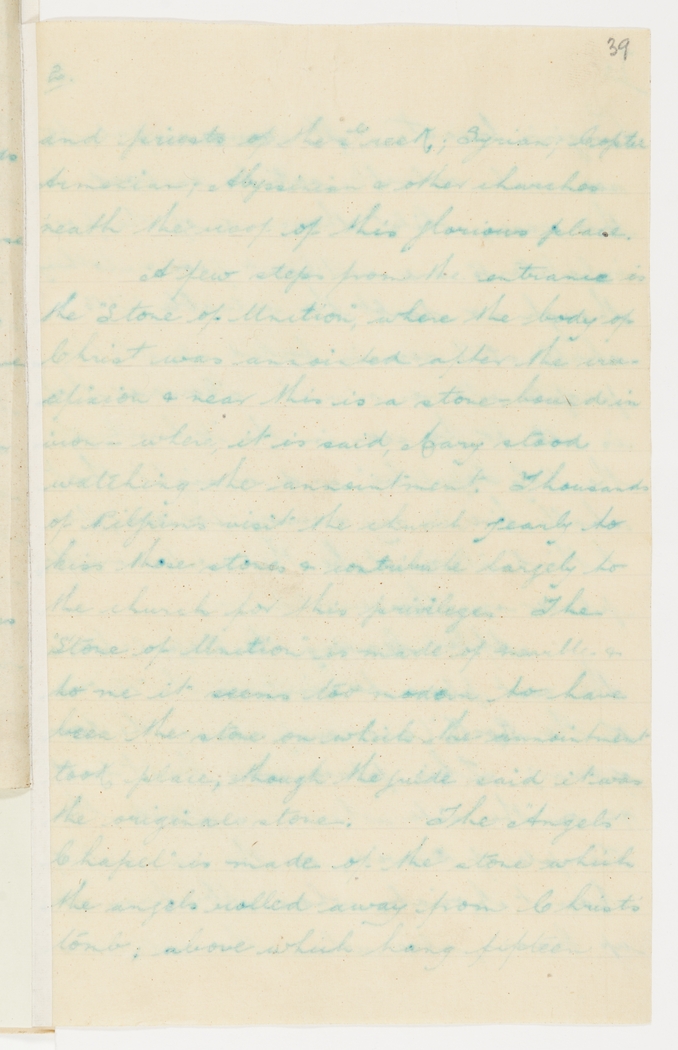 39
and priests of the Greek, Syrian, Copter
Armenian, Abyssinian & other churches
neath the roof of this glorious place.
A few steps from the entrance is
the "Stone of Unction", where the body of
Christ was annointed after the cru-
cifixion & near this is a stone bound in
iron - where, it is said, Mary stood
watching the annointment. Thousands
of Pilgrims visit the church yearly to
kiss these stones & contribute largely to
the church for this privilege. The
"Stone of Unction" is made of
to me it seems too modern to have
been the stone on which the annointment
took place, though the guide said it was
the original stone. The Angels
Chapel is made of the stone which
the angels rolled away from Christs
tomb; above which hang fifteen